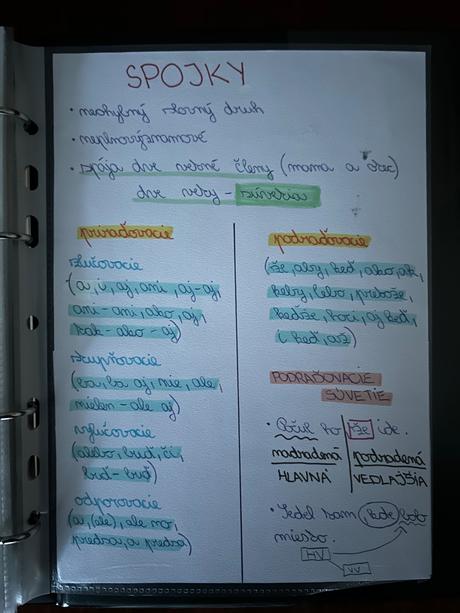 SPOJKY
• neohybný slovný druh
• neplnovýznamové
• spája dve vetné členy (mama a otec)
dve vety - súvetia
priraďovacie
zlučovacie
(a, i, aj, ani, aj-aj,
ani-ani, ako, aj,
tak-ako-aj)
stupňovacie
(ba, ba aj, nie, ale,
nielen-ale aj)
vylučovacie
(alebo, buď, či,
buď-buď)
odporovacie
(a, (ale), ale no,
predsa, a predsa)
podraďovacie
(že, aby, keď, ako, ak,
keby, lebo, pretože,
keďže, hoci, aj keď,
i keď, až)
PODRAĎOVACIE
SÚVETIE
• Počul ho že ide.
nadradená podradená
HLAVNÁ VEDLAJŠIA
• Sedel tam, kde bolo
miesto.
HV
VV